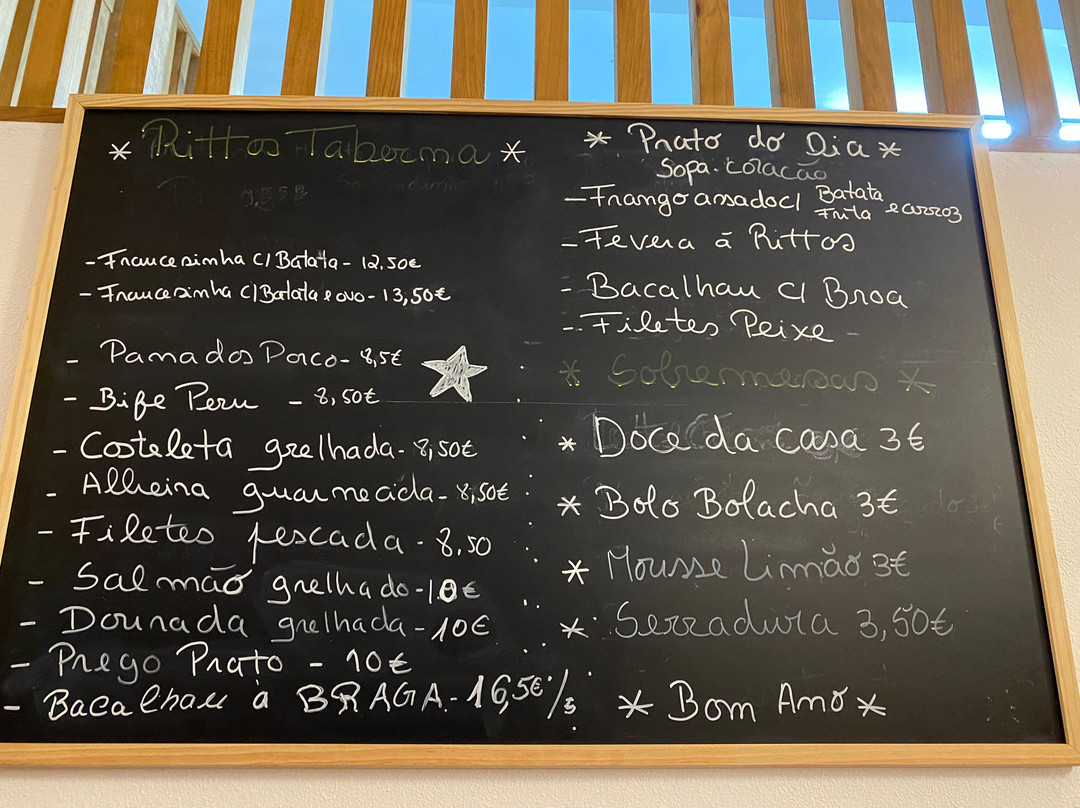 * Rittos Taberna *
- Francesinha c/ Batata - 12,50€
- Francesinha c/ Batata e ovo - 13,50€
- Panados Porco - 8,5€
- Bife Peru - 8,50€
- Costeleta grelhada - 8,50€
- Alheira guarnecida - 8,50€
- Filetes pescada - 8,50
- Salmão grelhado - 10€
- Dourada grelhada - 10€
- Prego Prato - 10€
- Bacalhau á BRAGA - 16,5€
* Prato do Dia *
Sopa. coração
- Frango assado c/ Batata Frita e arroz
- Fevera á Rittos
- Bacalhau c/ Broa
- Filetes Peixe -
* Sobremesas *
* Doce da casa 3€
* Bolo Bolacha 3€
* Mousse Limão 3€
* Serradura 3,50€
* Bom Ano *